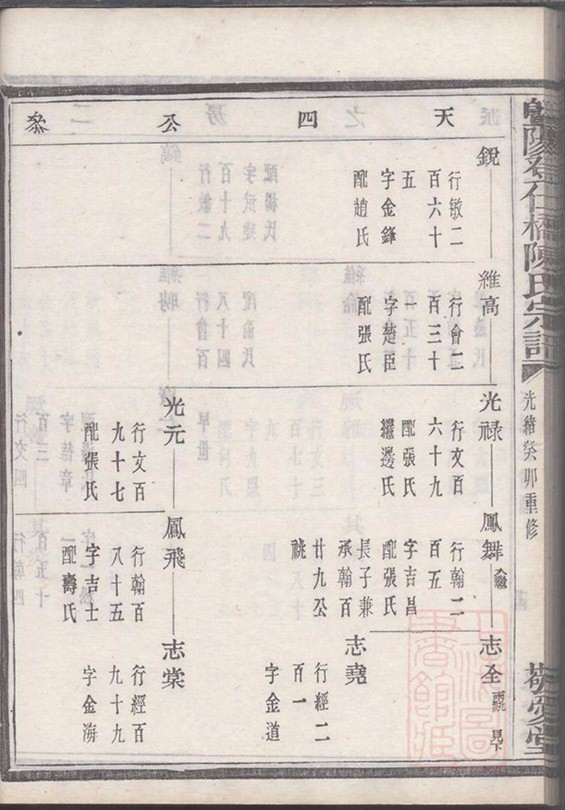 暨陽義仁橋陳氏宗譜
光緒癸卯重修
敬愛堂
天四公叅
銳
行敏二
百六十
五
字金鋒
配趙氏
維高
行會二
百三十
一
字楚臣
配張氏
光祿
行文百
六十九
配張氏
繼邊氏
鳳舞
行翰二
百五
字吉昌
配張氏
長子兼
承翰百
廿九公
祧
志全
見下
志堯
行經二
百一
字金道
光元
行文百
九十七
配張氏
鳳飛
行翰百
八十五
字吉士
配壽氏
志棠
行經百
九十九
字金海